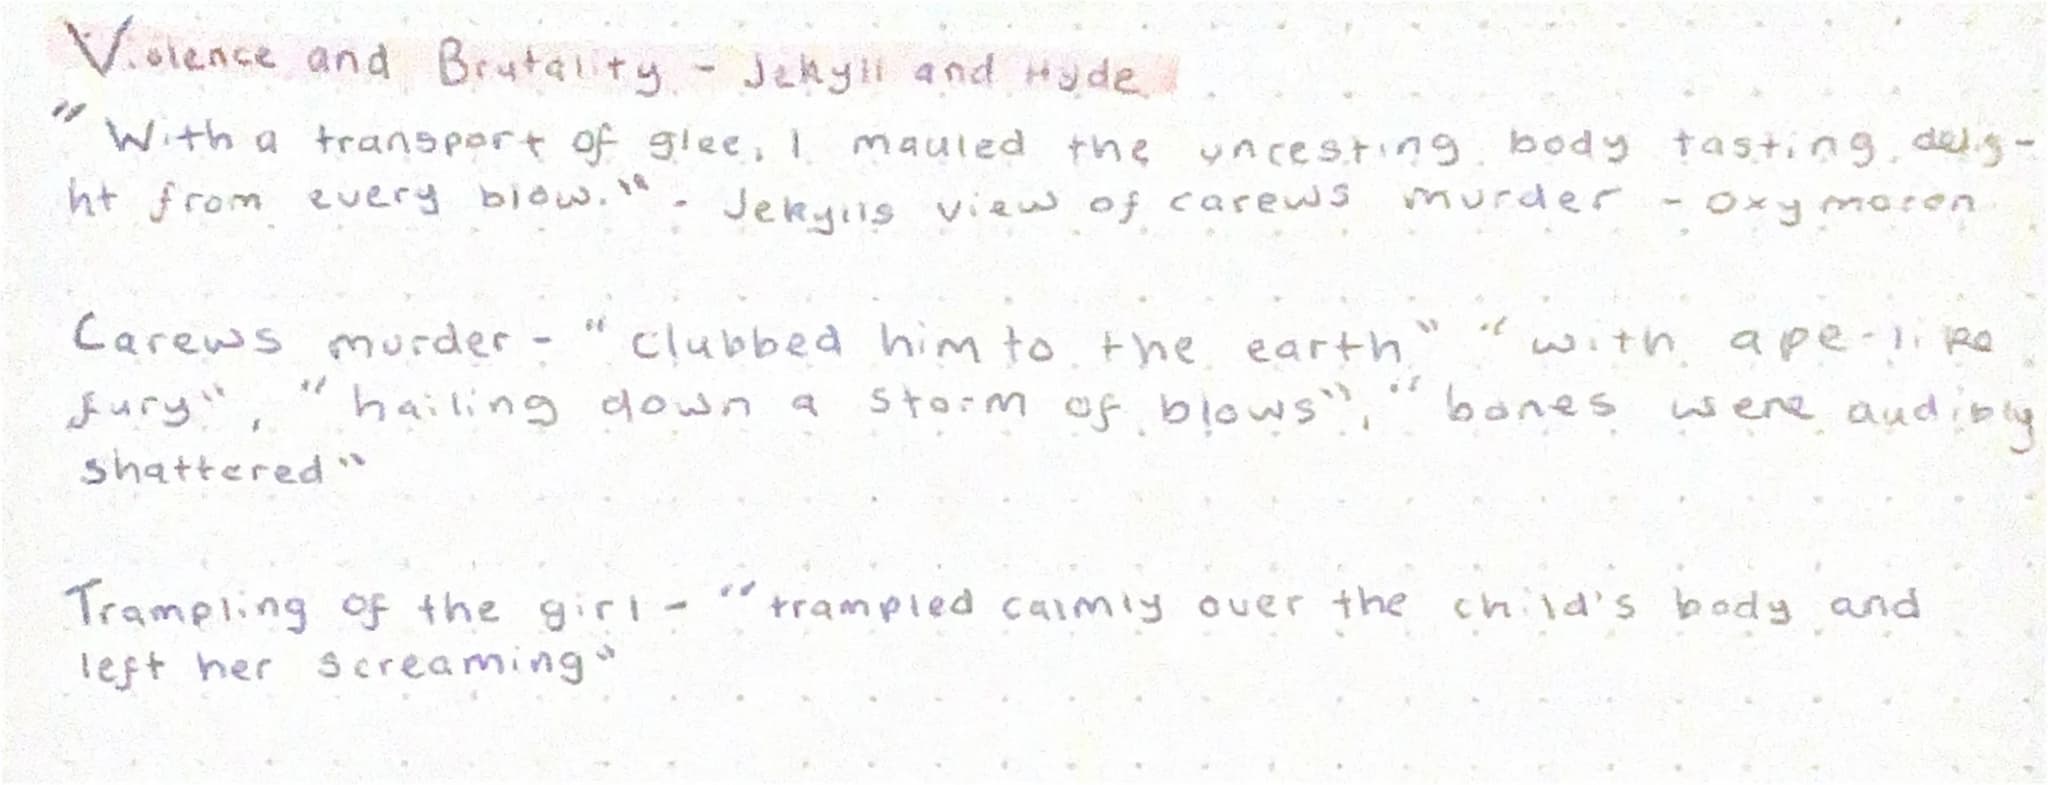 Violence and Brutality - Jekyll and Hyde
"With a transport of glee, I mauled the uncesting body tasting delig-
ht from every blow." - Jekylls view of carews murder - oxymoron
Carews murder - "clubbed him to the earth" "with ape-like
fury", "hailing down a storm of blows", "bones were audibly
shattered"
Trampling of the girl - "trampled calmly over the child's body and
left her screaming"